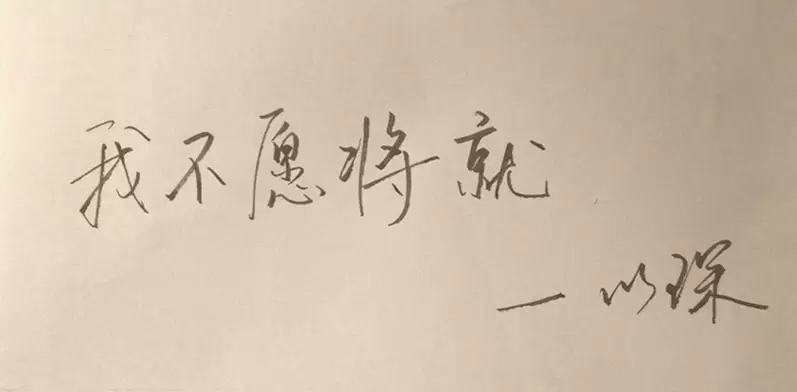 我不愿将就
—以琛